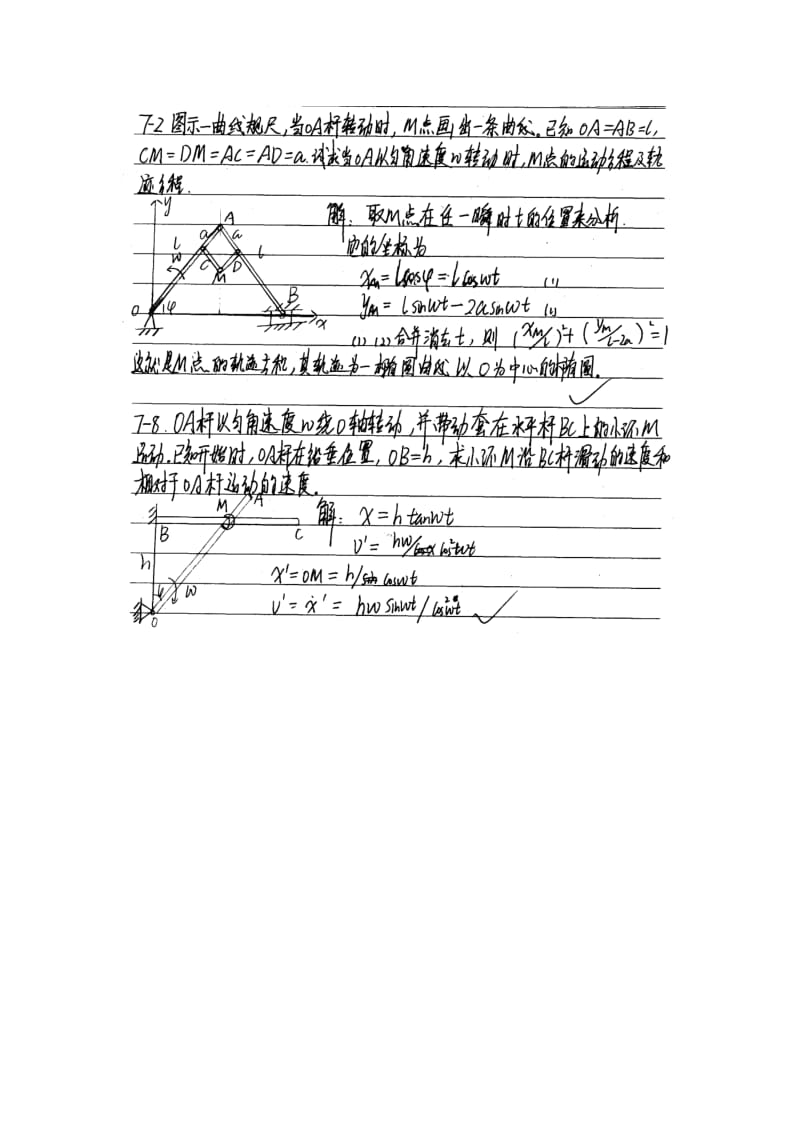 7-2 图示一曲线规尺,当OA杆转动时,M点画出一条曲线。已知 OA=AB=l,
CM=DM=AC=AD=a. 试求当OA以匀角速度w转动时,M点的运动方程及轨
迹方程.
y
A
l
a
a
w
C
D
l
M
B
O
φ
x
解: 取M点在任一瞬时t的位置来分析.
它的坐标为
xm = lcosφ = lcoswt (1)
ym = lsinwt-2asinwt (2)
(1) (2)合并消去t, 则 (xm/l)²+(ym/l-2a)²=1
这就是M点的轨迹方程,其轨迹为一椭圆曲线 以O为中心的椭圆。
7-8. OA杆以匀角速度w绕O轴转动,并带动套在水平杆BC上的小环M
运动.已知开始时,OA杆在铅垂位置,OB=h,求小环M沿BC杆滑动的速度和
相对于OA杆运动的速度。
M
A
B
C
h
φ
w
O
解: x = h tanwt
v' = hw/cos²wt
x'=OM = h/coswt
v' = ẋ' = hw sinwt/cos²wt